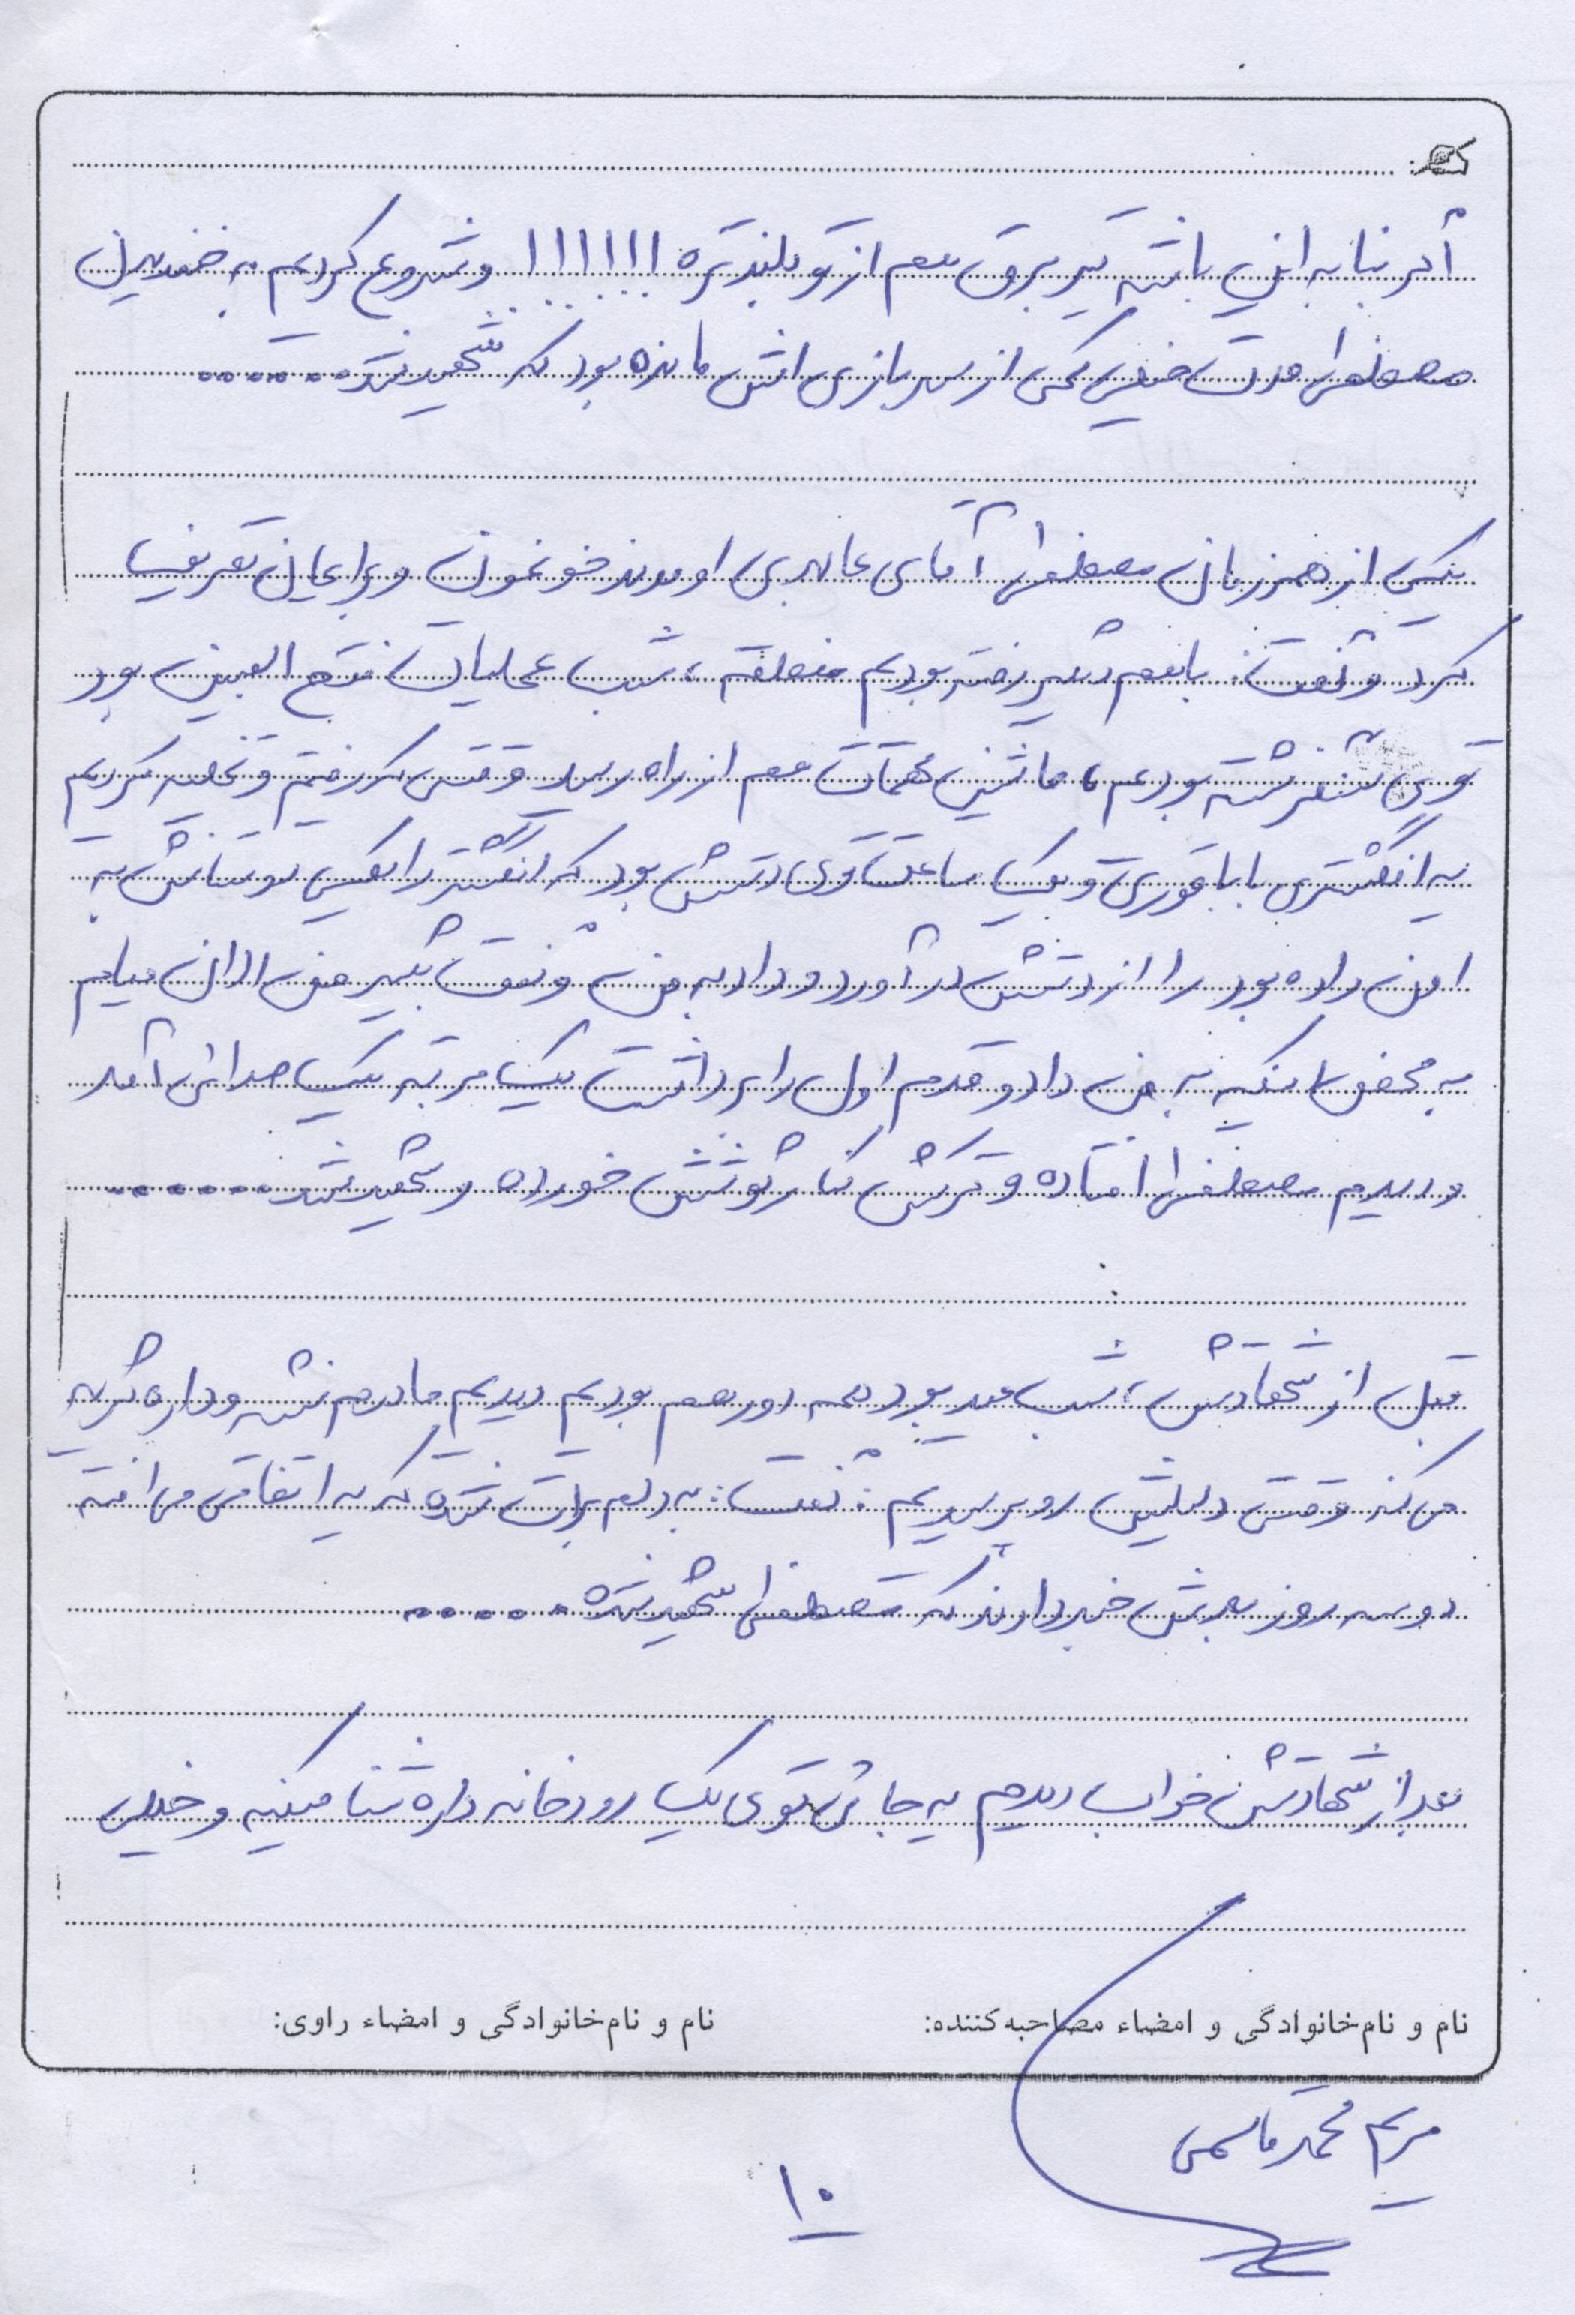 اگر بنا به این باشه تیر برق هم از تو بلندتره !!!!!! و شروع کردیم به خندیدن
مصطفی مدت خیلی کمی از سربازی اش مانده بود که شهید شد......
یکی از همرزمان مصطفی آقای عابدی اومدند خونمون و برامان تعریف
کرد و گفت: باهم رفته بودیم منطقه، شب عملیات فتح المبین بود
توی سنگر نشسته بودیم، ماشین مهمات هم از راه رسید وقتی که رفتیم و تخلیه کردیم
یه انگشتری باباقوری و یک ساعت توی دستش بود که انگشتر را یکی دوستاش به
اون داده بود را از دستش درآورد و داد به من و گفت بگیر من الان میام
به محض اینکه به من داد و قدم اول را برداشت یک مرتبه یک صدائی آمد
و دیدم مصطفی افتاده و ترکش کنار گوشش خورده و شهید شد.......
قبل از شهادتش، شب عید بود همه دور هم بودیم دیدیم مادرم نشسته و داره گریه
می کنه وقتی دلیلش رو پرسیدیم، گفت: به دلم برات شده که یه اتفاقی می افته
دو سه روز بعدش خبر دادند که مصطفی شهید شده......
بعد از شهادتش خواب دیدم یه جائی توی یک رودخانه داره شنا میکنه و خیلی
نام و نام‌خانوادگی و امضاء مصاحبه‌کننده: نام و نام‌خانوادگی و امضاء راوی:
مریم محمدقاسمی
۱۰